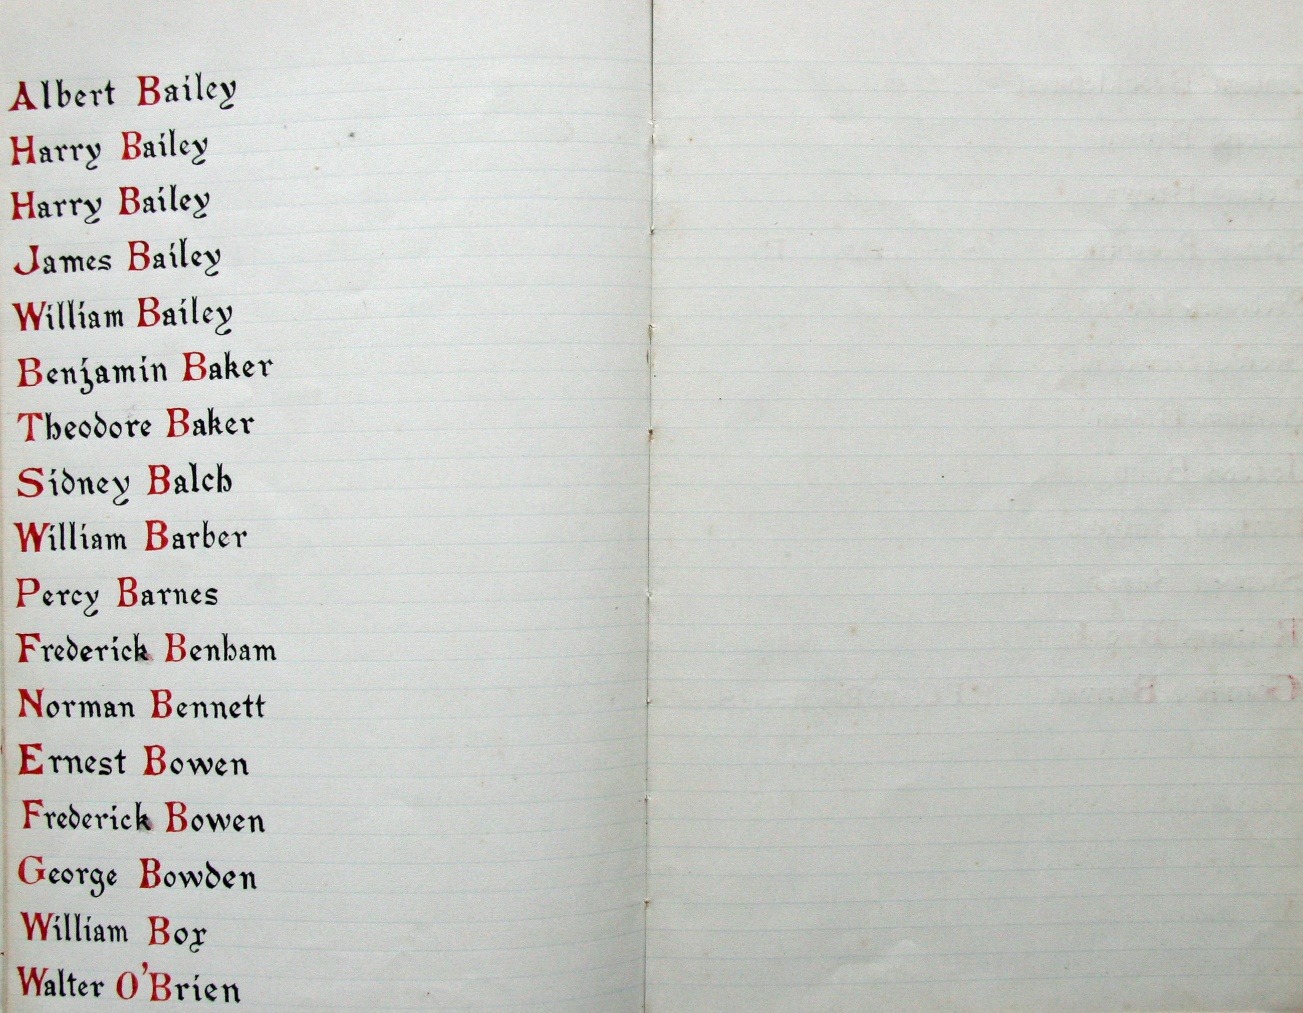 Albert Bailey
Harry Bailey
Harry Bailey
James Bailey
William Bailey
Benjamin Baker
Theodore Baker
Sidney Balch
William Barber
Percy Barnes
Frederick Benham
Norman Bennett
Ernest Bowen
Frederick Bowen
George Bowden
William Box
Walter O'Brien